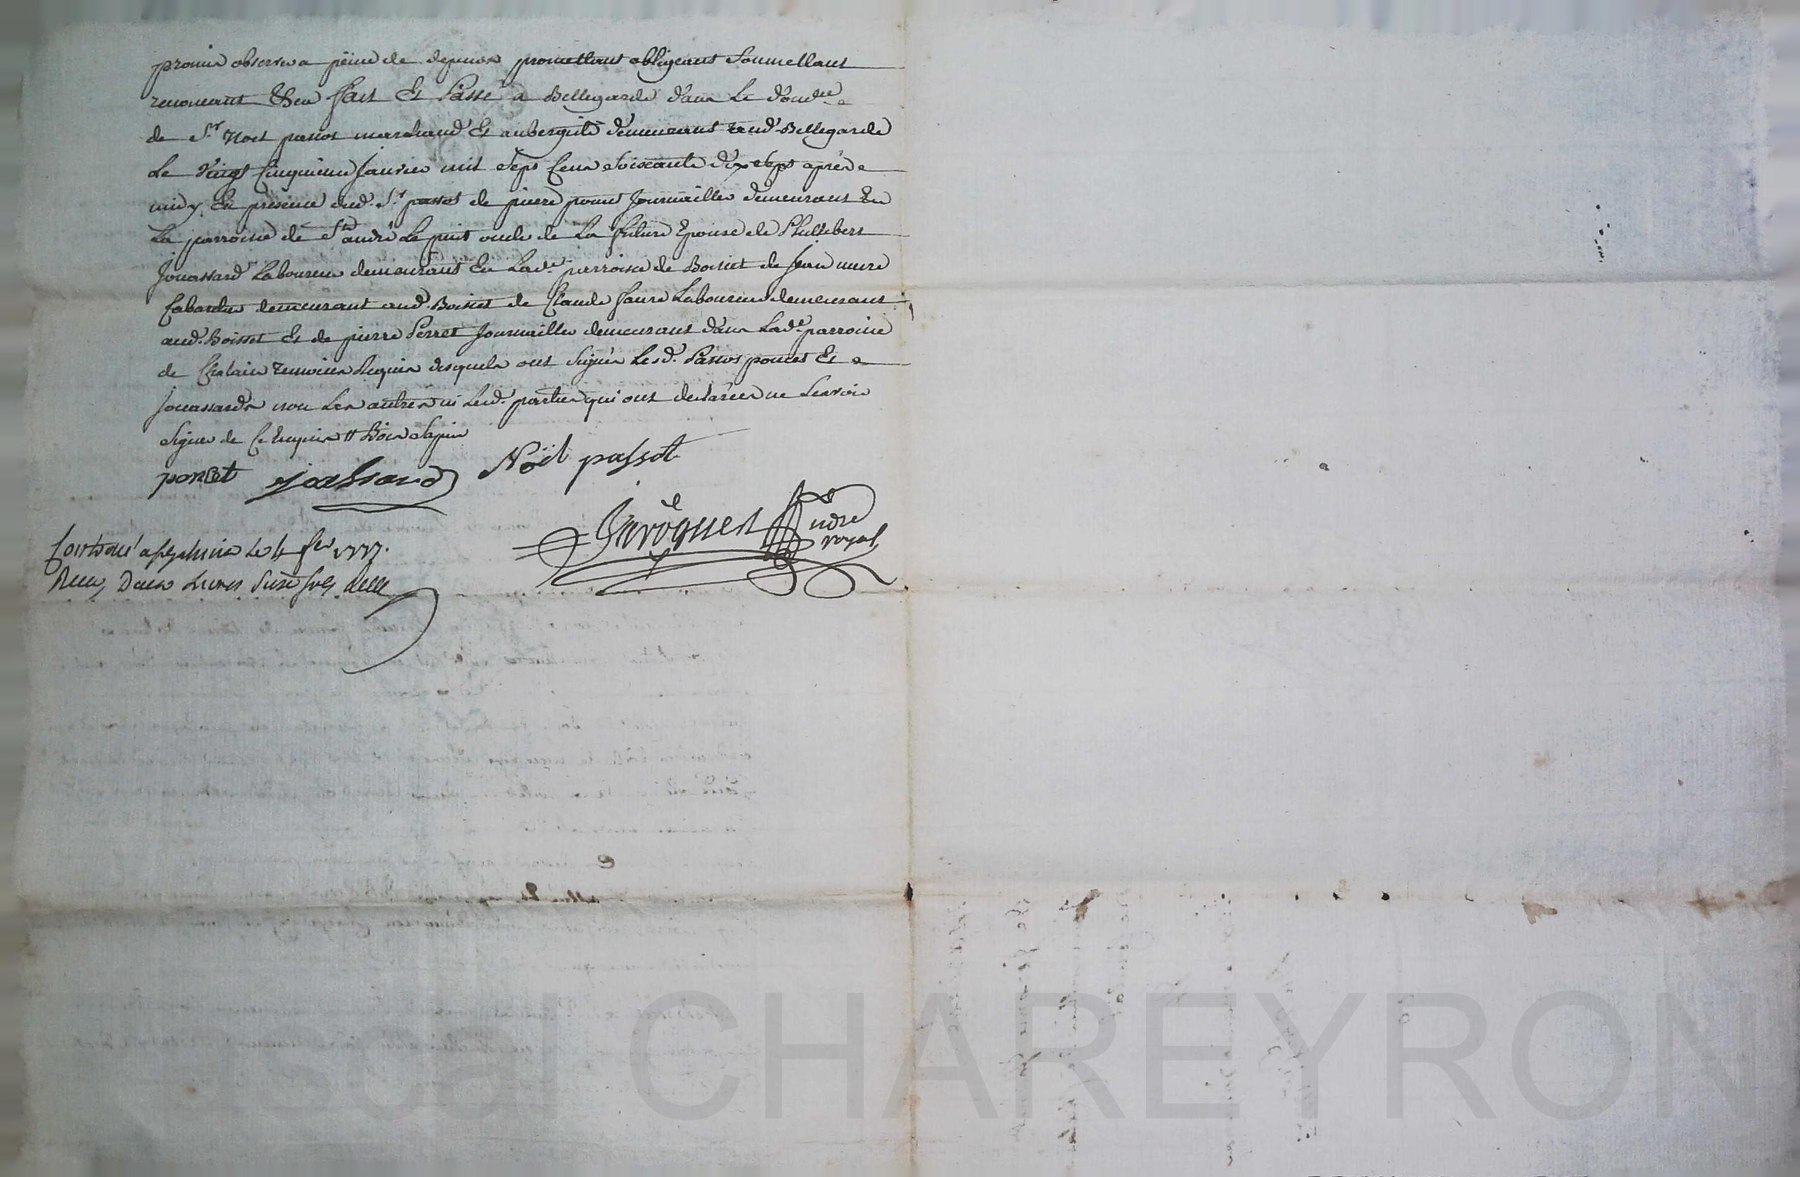 promis observer a peine de depens promettant obligeant Soumettant
renonceant &en fait Et Passé a Bellegarde dans Le
de Sr Noel passot marchand Et aubergiste demeurant aud. Bellegarde
Le Vingt Cinquieme Janvier mil Sept Cent Soixante dix Sept après
midy En présence dud. Sr passot de pierre poncet Journaillier demeurant En
La parroisse de St andré Le puit oncle de La future Epouse de Philibert
Jouassard Laboureur demeurant En Lade. parroisse de Boisset de Jean mure
Cabartier demeurant aud. Boisset de Claude faure Laboureur demeurant
aud. Boisset Et de pierre Perret Journaillier demeurant dans Lade. parroisse
de Chalain temoins Requis desquels ont Signés Lesd. Passot poncet Et
Jouassard non Les autres ni Lesd. parties qui ont declarées ne Scavoir
Signer de Ce Enquis
poncet Noël passot
notre
royal
a Le 4 fer 1777.
Recu Livres
Pascal CHAREYRON